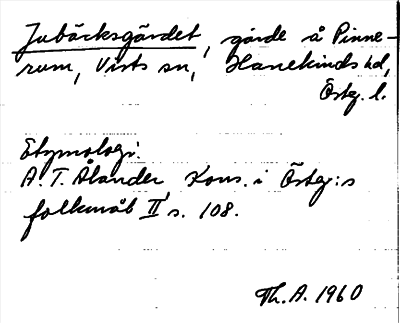 Jubäcksgärdet, gärde å Pinne-
rum, Vists sn, Hanekinds hd,
Östg. l.
Etymologi:
A. T. Ålander, Kons. i Östg:s
folkmål II s. 108.
Th. A. 1960